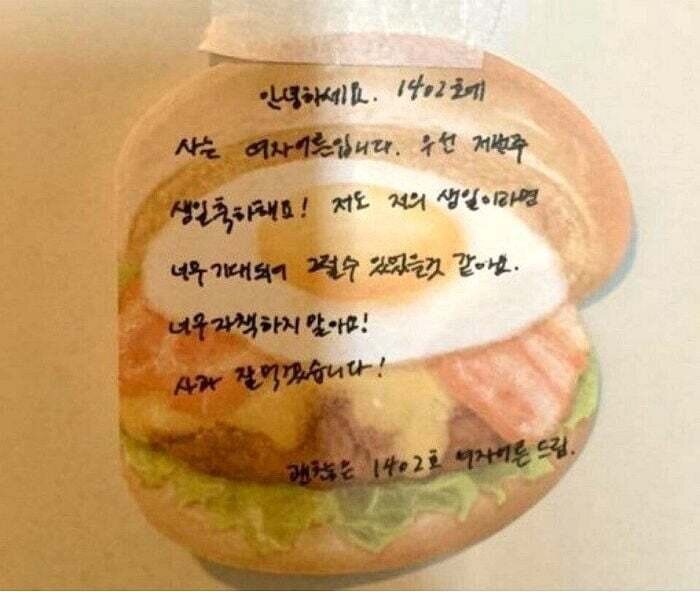 안녕하세요. 1402호에
사는 여자어른입니다. 우선 저번주
생일축하해요! 저도 저의 생일이라면
너무 기대되어 그럴수 있었을것 같아요.
너무 자책하지 말아요!
사과 잘먹겠습니다!
괜찮은 1402호 여자어른 드림.